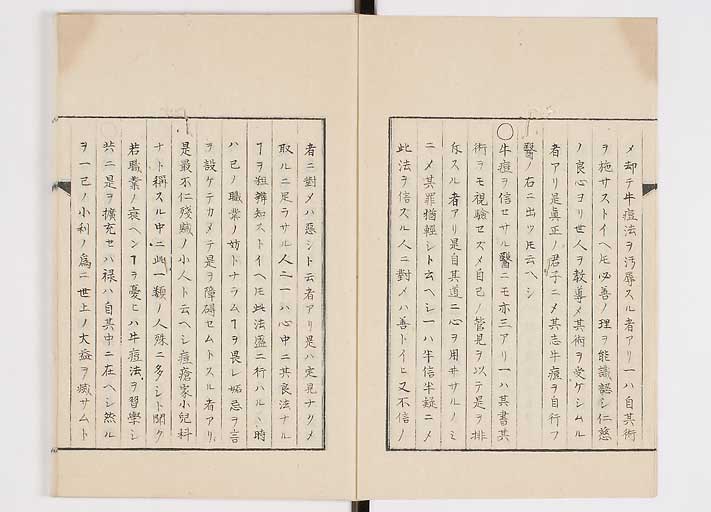 メ却テ牛痘法ヲ汚辱スル者アリ一ハ自其術
ヲ施サストイヘ𪜈必善ノ理ヲ能識認シ仁慈
ノ良心ヨリ世人ヲ教導メ其術ヲ受ケシムル
者アリ是真正ノ君子ニメ其志牛痘ヲ自行フ
醫ノ右ニ出ツ𪜈云ヘシ
〇牛痘ヲ信セサル醫ニモ亦三アリ一ハ其書其
術ヲモ視驗セズメ自己ノ管見ヲ以テ是ヲ排
斥スル者アリ是自其道ニ心ヲ用ヰサルノミ
ニメ其罪猶輕シト云ヘシ一ハ半信半疑ニメ
此法ヲ信スル人ニ對メハ善トイヒ又不信ノ
者ニ對メハ惡シト云者アリ是ハ定見ナリメ
取ルニ足ラサル人ニ一ハ心中ニ其良法ナル
ヿヲ粗辨知ストイヘ𪜈此法盛ニ行ハル丶時
ハ己ノ職業ノ妨トナラムヿヲ畏レ妬忌ヲ言
ヲ設ケテカメテ是ヲ障碍セムトスル者アリ
是最不仁殘賊ノ小人ト云ヘシ痘瘡家小兒科
ナト稱スル中ニ此一類ノ人殊ニ多シト聞ク
若職業ノ衰ヘンヿヲ憂ヒハ牛痘法ヲ習學シ
共ニ是ヲ擴充セハ禄ハ自其中ニ在ヘシ然ル
ヲ一己ノ小利ノ爲ニ世上ノ大益ヲ滅サムト